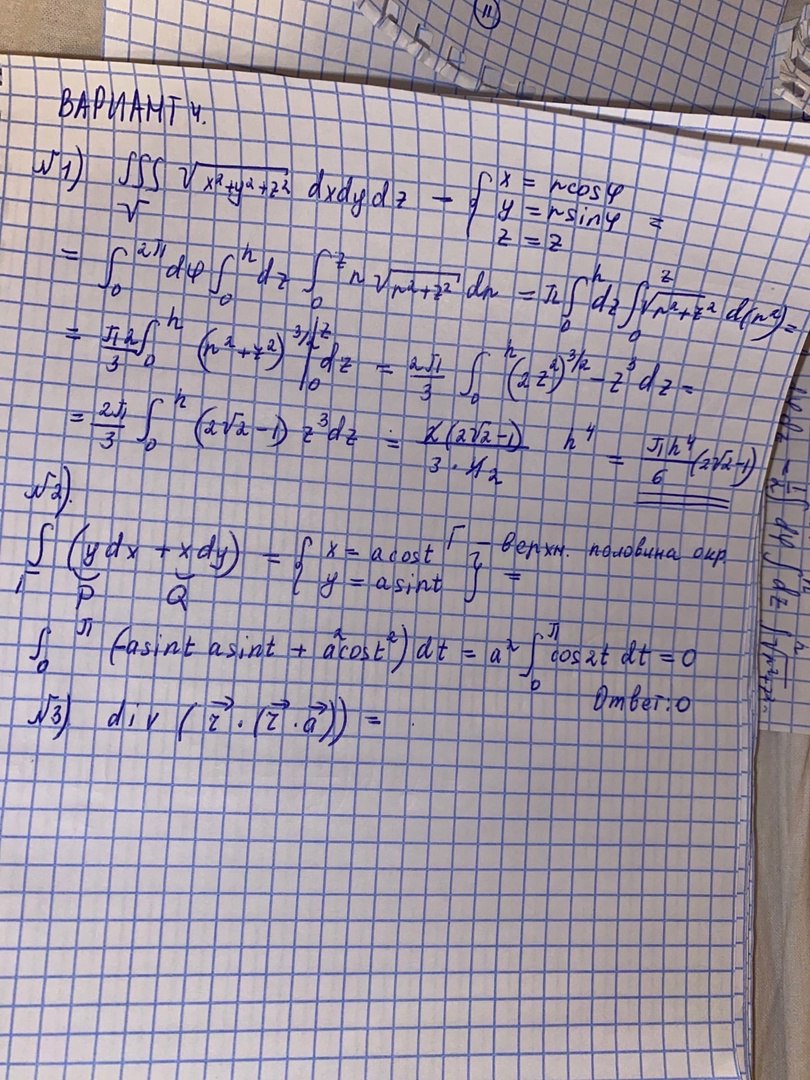 11
ВАРИАНТ 4.
№1) ∭_V √(x²+y²+z²) dxdydz - { x = rcosφ
y = rsinφ =
z = z
= ∫₀^2π dφ ∫₀^h dz ∫₀^z r √(r²+z²) dr = π ∫₀^h dz ∫₀^z √(r²+z²) d(r²) =
= π2/3 ∫₀^h (r²+z²)^3/2 |₀^z dz = 2π/3 ∫₀^h (2z²)^3/2 - z³ dz =
= 2π/3 ∫₀^h (2√2-1) z³dz = 2(2√2-1)/3·4₂ h⁴ = πh⁴/6 (2√2-1)
№2).
∫_Γ (ydx + xdy) = { x = acost Γ - верхн. половина окр.
P Q y = asint } =
∫₀^π (-asint asint + a²cost²) dt = a² ∫₀^π cos2t dt = 0
Ответ: 0
№3) div (r⃗·(r⃗·a⃗)) =